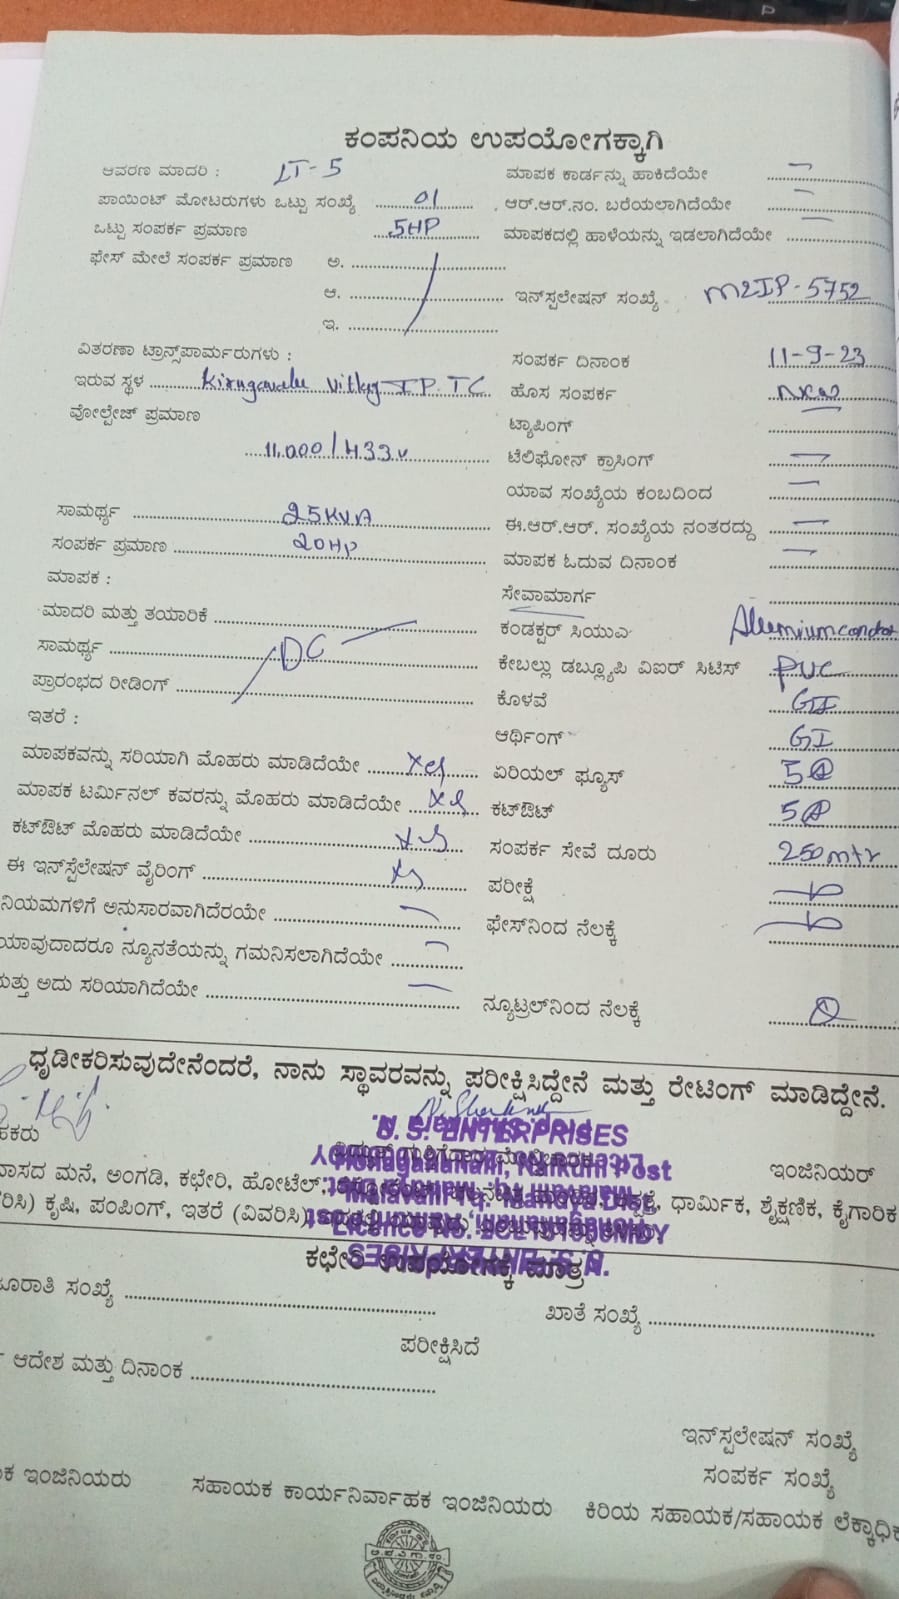 ಕಂಪನಿಯ ಉಪಯೋಗಕ್ಕಾಗಿ
ಆವರಣ ಮಾದರಿ : LT-5 ಮಾಪಕ ಕಾರ್ಡನ್ನು ಹಾಕಿದೆಯೇ
ಪಾಯಿಂಟ್ ಮೋಟರುಗಳು ಒಟ್ಟು ಸಂಖ್ಯೆ 01 ಆರ್.ಆರ್.ನಂ. ಬರೆಯಲಾಗಿದೆಯೇ
ಒಟ್ಟು ಸಂಪರ್ಕ ಪ್ರಮಾಣ 5HP ಮಾಪಕದಲ್ಲಿ ಹಾಳೆಯನ್ನು ಇಡಲಾಗಿದೆಯೇ
ಫೇಸ್ ಮೇಲೆ ಸಂಪರ್ಕ ಪ್ರಮಾಣ ಅ.
ಆ. ಇನ್‌ಸ್ಪಲೇಷನ್ ಸಂಖ್ಯೆ M2IP-5752
ಇ.
ವಿತರಣಾ ಟ್ರಾನ್ಸ್‌ಪಾರ್ಮರುಗಳು : ಸಂಪರ್ಕ ದಿನಾಂಕ 11-9-23
ಇರುವ ಸ್ಥಳ IP. TC ಹೊಸ ಸಂಪರ್ಕ New
ವೋಲ್ಟೇಜ್ ಪ್ರಮಾಣ ಟ್ಯಾಪಿಂಗ್
11.000/433v ಟೆಲಿಫೋನ್ ಕ್ರಾಸಿಂಗ್
ಯಾವ ಸಂಖ್ಯೆಯ ಕಂಬದಿಂದ
ಸಾಮರ್ಥ್ಯ 25KVA ಈ.ಆರ್.ಆರ್. ಸಂಖ್ಯೆಯ ನಂತರದ್ದು
ಸಂಪರ್ಕ ಪ್ರಮಾಣ 20HP ಮಾಪಕ ಓದುವ ದಿನಾಂಕ
ಮಾಪಕ : ಸೇವಾಮಾರ್ಗ
ಮಾದರಿ ಮತ್ತು ತಯಾರಿಕೆ ಕಂಡಕ್ಟರ್ ಸಿಯುಎ
ಸಾಮರ್ಥ್ಯ DC ಕೇಬಲ್ಲು ಡಬ್ಲ್ಯೂಪಿ ವಿಐರ್ ಸಿಟಿಸ್ PVC
ಪ್ರಾರಂಭದ ರೀಡಿಂಗ್ ಕೊಳವೆ GI
ಇತರೆ : ಆರ್ಥಿಂಗ್ GI
ಮಾಪಕವನ್ನು ಸರಿಯಾಗಿ ಮೊಹರು ಮಾಡಿದೆಯೇ Yes ಏರಿಯಲ್ ಫ್ಯೂಸ್ 5A
ಮಾಪಕ ಟರ್ಮಿನಲ್ ಕವರನ್ನು ಮೊಹರು ಮಾಡಿದೆಯೇ Yes ಕಟ್‌ಔಟ್ 5A
ಕಟ್‌ಔಟ್ ಮೊಹರು ಮಾಡಿದೆಯೇ Yes ಸಂಪರ್ಕ ಸೇವೆ ದೂರು 250mtr
ಈ ಇನ್‌ಸ್ಟೆಲೇಷನ್ ವೈರಿಂಗ್ Yes ಪರೀಕ್ಷೆ
ನಿಯಮಗಳಿಗೆ ಅನುಸಾರವಾಗಿದೆರಯೇ ಫೇಸ್‌ನಿಂದ ನೆಲಕ್ಕೆ
ಯಾವುದಾದರೂ ನ್ಯೂನತೆಯನ್ನು ಗಮನಿಸಲಾಗಿದೆಯೇ
ಮತ್ತು ಅದು ಸರಿಯಾಗಿದೆಯೇ ನ್ಯೂಟ್ರಲ್‌ನಿಂದ ನೆಲಕ್ಕೆ
ಧೃಡೀಕರಿಸುವುದೇನೆಂದರೆ, ನಾನು ಸ್ಥಾವರವನ್ನು ಪರೀಕ್ಷಿಸಿದ್ದೇನೆ ಮತ್ತು ರೇಟಿಂಗ್ ಮಾಡಿದ್ದೇನೆ.
U. S. ENTERPRISES
ಇಂಜಿನಿಯರ್
ಮನೆ, ಅಂಗಡಿ, ಕಛೇರಿ, ಹೋಟೆಲ್, ಧಾರ್ಮಿಕ, ಶೈಕ್ಷಣಿಕ, ಕೈಗಾರಿಕ
ಕೃಷಿ, ಪಂಪಿಂಗ್, ಇತರೆ (ವಿವರಿಸಿ)
ಕಛೇರಿ ಉಪಯೋಗಕ್ಕೆ ಮಾತ್ರ
ಸಂಖ್ಯೆ ಖಾತೆ ಸಂಖ್ಯೆ
ಪರೀಕ್ಷಿಸಿದೆ
ಆದೇಶ ಮತ್ತು ದಿನಾಂಕ
ಇನ್‌ಸ್ಪಲೇಷನ್ ಸಂಖ್ಯೆ
ಸಂಪರ್ಕ ಸಂಖ್ಯೆ
ಇಂಜಿನಿಯರು ಸಹಾಯಕ ಕಾರ್ಯನಿರ್ವಾಹಕ ಇಂಜಿನಿಯರು ಕಿರಿಯ ಸಹಾಯಕ/ಸಹಾಯಕ